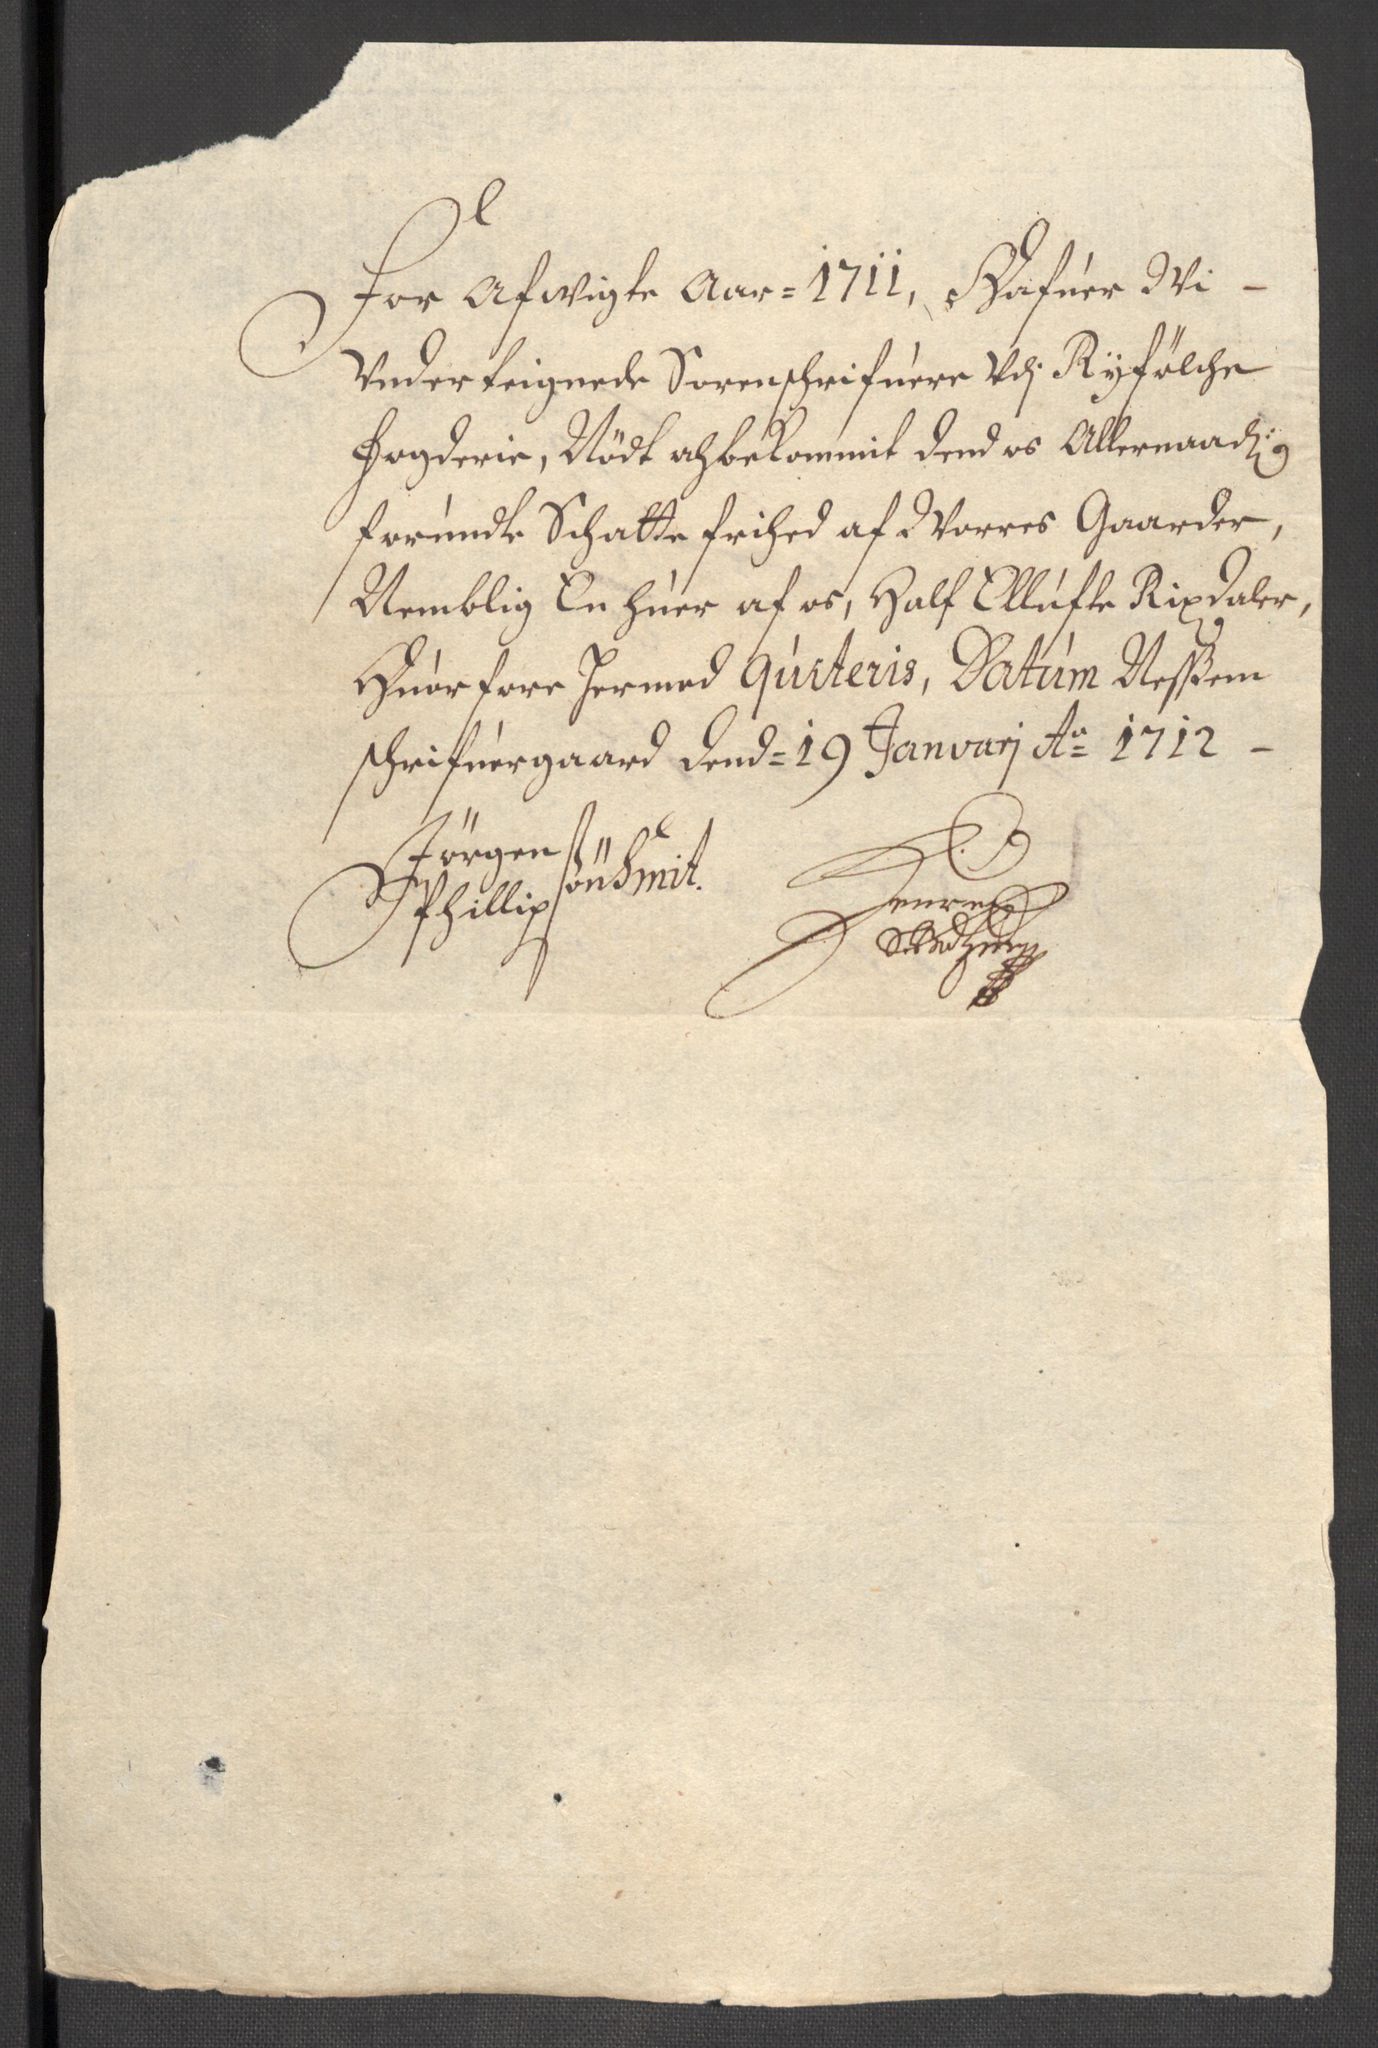 For Afwigte Aar = 1711, Hafuer Wi -
Underteignede Sorenschrifuere Udj Ryfölche
Fogderie, Nödt ahbekommit dend os Allernaadig
forundte Schatte frihed af Worres Gaarder,
Nemblig En huer af os, Half Ellufte Rixdaler,
Huorfore hermed qviteris, Datum Nessem
schrifuergaard dend = 19 Januarj Ao 1712 -
Jörgen
Phillip sön Smit. Henrich